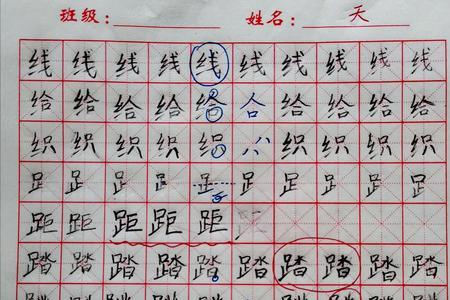 班级: 姓名: 天
线 线 线 线 线 线 线 线 线 线
给 给 给 给 给 合 给 给 给 给
织 织 织 织 织 八 织 织 织 织
𧾷 𧾷 𧾷 𧾷 𧾷 𧾷 𧾷 𧾷 𧾷 𧾷
距 距 距 距
踏 踏 踏 踏 踏 踏 踏 踏 踏 踏